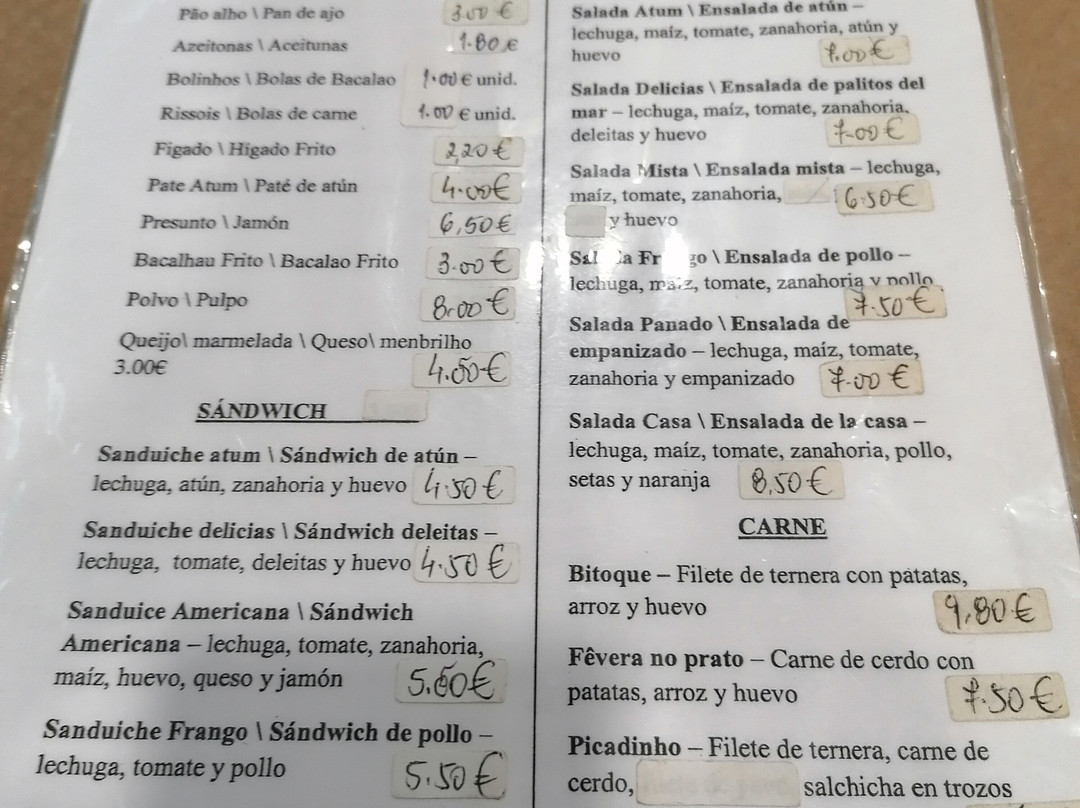 Pão alho \ Pan de ajo 3.00 €
Azeitonas \ Aceitunas 1.80 €
Bolinhos \ Bolas de Bacalao 1.00 € unid.
Rissois \ Bolas de carne 1.00 € unid.
Figado \ Higado Frito 2,20 €
Pate Atum \ Paté de atún 4.00€
Presunto \ Jamón 6,50€
Bacalhau Frito \ Bacalao Frito 3.00 €
Polvo \ Pulpo 8.00 €
Queijo\ marmelada \ Queso\ menbrilho
3.00€ 4.00€
SÁNDWICH
Sanduiche atum \ Sándwich de atún –
lechuga, atún, zanahoria y huevo 4.50 €
Sanduiche delicias \ Sándwich deleitas –
lechuga, tomate, deleitas y huevo 4.50 €
Sanduice Americana \ Sándwich
Americana – lechuga, tomate, zanahoria,
maíz, huevo, queso y jamón 5.60€
Sanduiche Frango \ Sándwich de pollo –
lechuga, tomate y pollo 5.50€
Salada Atum \ Ensalada de atún –
lechuga, maíz, tomate, zanahoria, atún y
huevo 7.00€
Salada Delicias \ Ensalada de palitos del
mar – lechuga, maíz, tomate, zanahoria,
deleitas y huevo 7.00€
Salada Mista \ Ensalada mista – lechuga,
maíz, tomate, zanahoria, 6.50€
y huevo
\ Ensalada de pollo –
lechuga, maíz, tomate, zanahoria y pollo
7.50€
Salada Panado \ Ensalada de
empanizado – lechuga, maíz, tomate,
zanahoria y empanizado 7.00 €
Salada Casa \ Ensalada de la casa –
lechuga, maíz, tomate, zanahoria, pollo,
setas y naranja 8,50€
CARNE
Bitoque – Filete de ternera con patatas,
arroz y huevo 9,80€
Fêvera no prato – Carne de cerdo con
patatas, arroz y huevo 7.50€
Picadinho – Filete de ternera, carne de
cerdo, salchicha en trozos